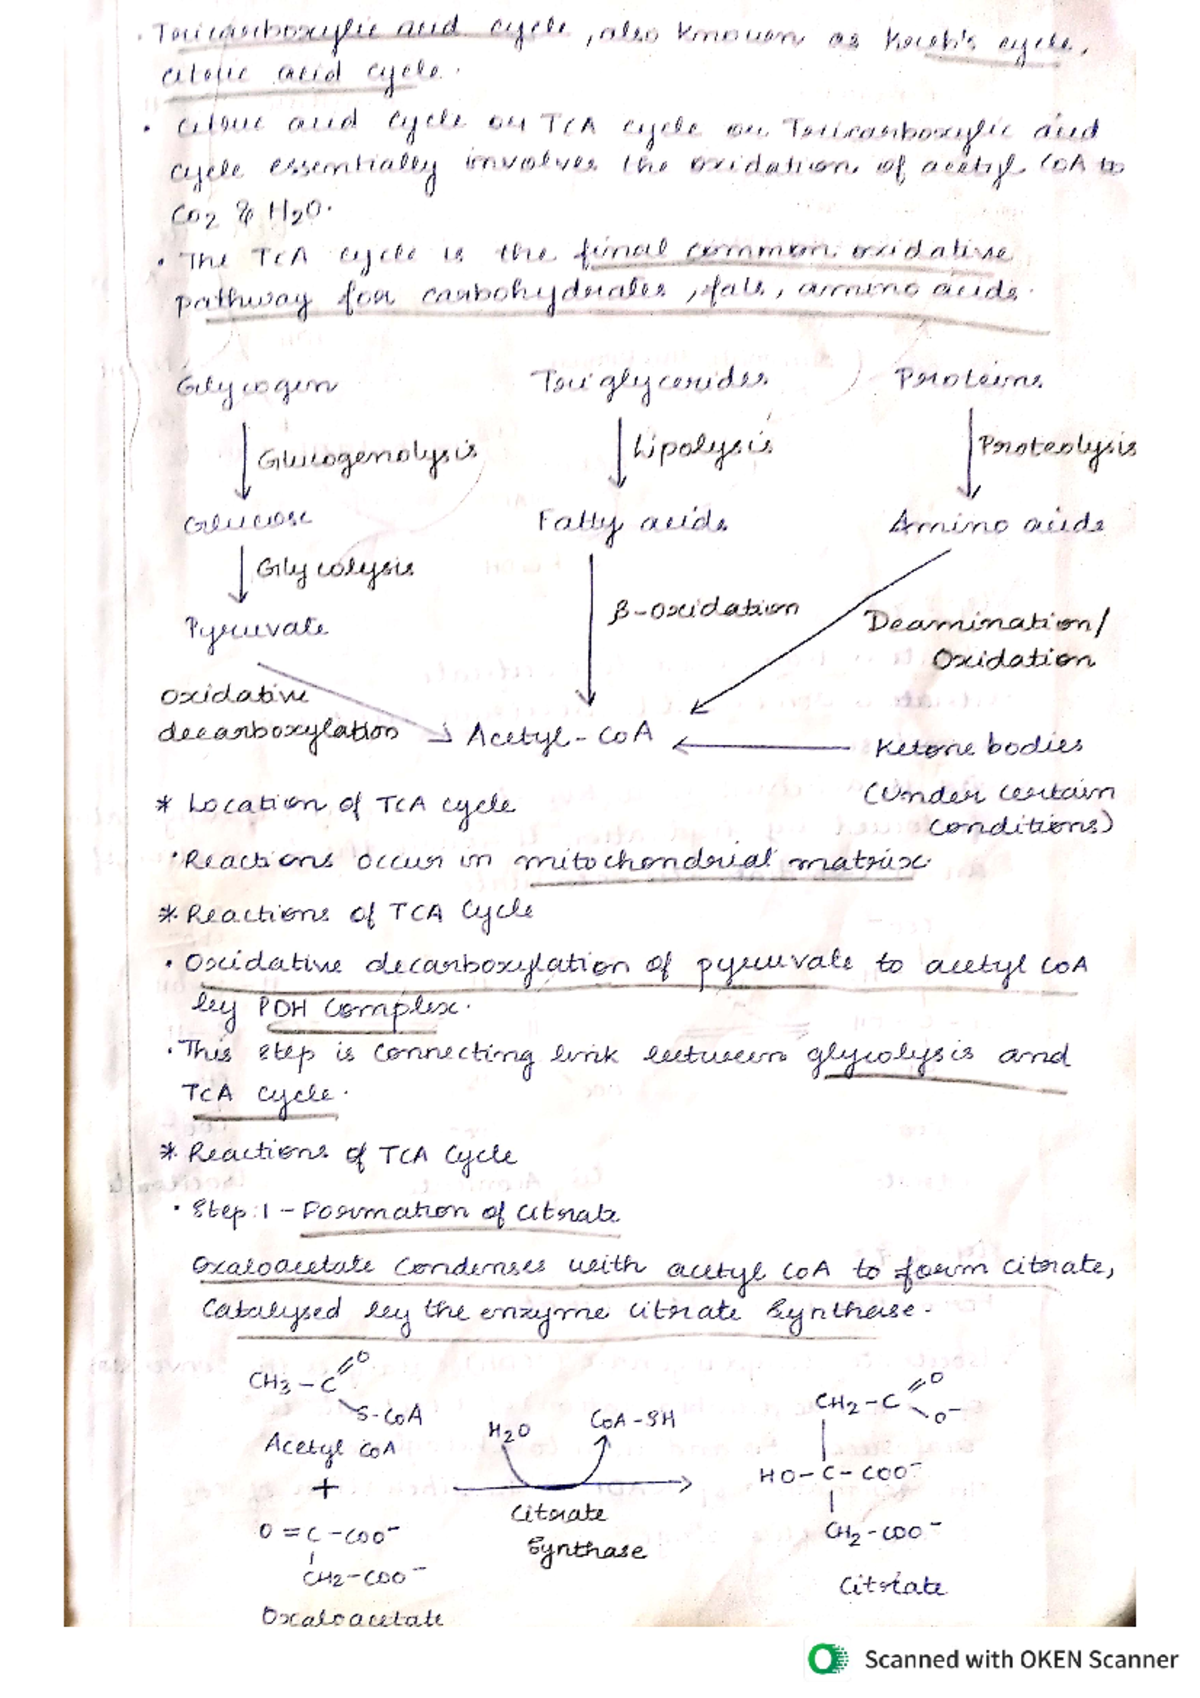 · Tricarboxylic acid cycle, also known as Kreb's cycle,
citric acid cycle.
· Citric acid cycle or TCA cycle or Tricarboxylic acid
cycle essentially involves the oxidation of acetyl CoA to
CO2 & H2O.
· The TCA cycle is the final common oxidative
pathway for carbohydrates, fats, amino acids.
Glycogen Triglycerides Proteins
Glucogenolysis Lipolysis Proteolysis
Glucose Fatty acids Amino acids
Glycolysis
β-oxidation
Pyruvate
Deamination/
Oxidation
oxidative
decarboxylation Acetyl-CoA Ketone bodies
(Under certain
conditions)
* Location of TCA cycle
· Reactions occur in mitochondrial matrix.
* Reactions of TCA Cycle
· Oxidative decarboxylation of pyruvate to acetyl CoA
by PDH Complex.
· This step is connecting link between glycolysis and
TCA cycle.
* Reactions of TCA Cycle
· Step:1 - Formation of citrate
Oxaloacetate condenses with acetyl CoA to form citrate,
Catalysed by the enzyme citrate Synthase.
CH3-C=O
S-CoA
Acetyl CoA
+
H2O CoA-SH
Citrate
Synthase
O=C-COO-
CH2-COO-
Oxaloacetate
CH2-C=O
O-
HO-C-COO-
CH2-COO-
Citrate
Scanned with OKEN Scanner